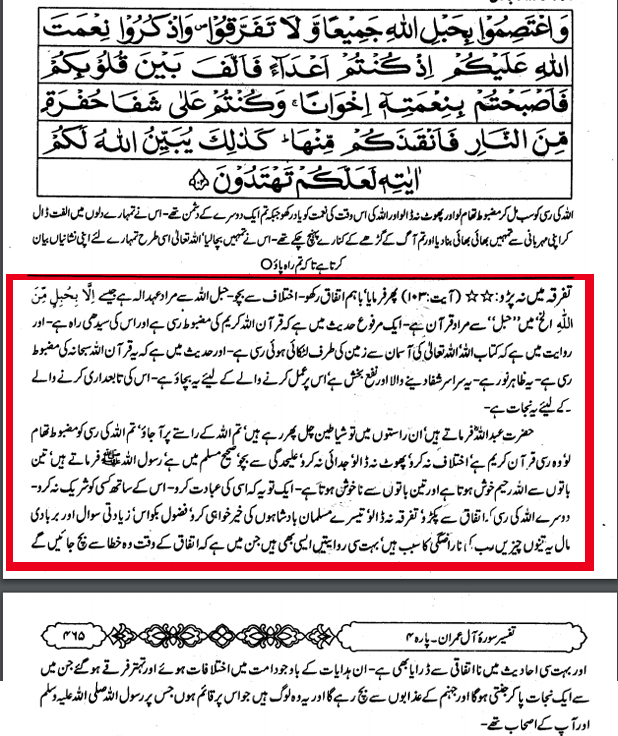 وَاعْتَصِمُوْا بِحَبْلِ اللّٰهِ جَمِيْعًا وَّلَا تَفَرَّقُوْا ۪ وَاذْكُرُوْا نِعْمَتَ
اللّٰهِ عَلَيْكُمْ اِذْ كُنْتُمْ اَعْدَآءً فَاَلَّفَ بَيْنَ قُلُوْبِكُمْ
فَاَصْبَحْتُمْ بِنِعْمَتِهٖٓ اِخْوَانًا ۚ وَكُنْتُمْ عَلٰى شَفَا حُفْرَةٍ
مِّنَ النَّارِ فَاَنْقَذَكُمْ مِّنْهَا ؕ كَذٰلِكَ يُبَيِّنُ اللّٰهُ لَكُمْ
اٰيٰتِهٖ لَعَلَّكُمْ تَهْتَدُوْنَ ۝۱۰۳
اللہ کی رسی کو سب مل کر مضبوط تھام لو اور پھوٹ نہ ڈالو اور اللہ کی اس وقت کی نعمت کو یاد رکھو جبکہ تم ایک دوسرے کے دشمن تھے۔ اس نے تمہارے دلوں میں الفت ڈال
کر اپنی مہربانی سے تمہیں بھائی بھائی بنا دیا اور تم آگ کے گڑھے کے کنارے پہنچ چکے تھے۔ اس نے تمہیں بچا لیا' اللہ تعالیٰ اسی طرح تمہارے لئے اپنی نشانیاں بیان
کرتا ہے تا کہ تم راہ پاؤ ○
تفرقہ میں نہ پڑو: ☆☆ (آیت:۱۰۳) پھر فرمایا' باہم اتفاق رکھو۔ اختلاف سے بچو۔ حبل اللہ سے مراد عہد الہ ہے جیسے اِلَّا بِحَبْلٍ مِّنَ
اللّٰهِ الخ' میں ''حبل'' سے مراد قرآن ہے۔ ایک مرفوع حدیث میں ہے کہ قرآن اللہ کریم کی مضبوط رسی ہے اور اس کی سیدھی راہ ہے۔ اور
روایت میں ہے کہ کتاب اللہ' اللہ تعالیٰ کی آسمان سے زمین کی طرف لٹکائی ہوئی رسی ہے۔ اور حدیث میں ہے کہ یہ قرآن اللہ سبحانہ کی مضبوط
رسی ہے۔ یہ ظاہر نور ہے۔ یہ سراسر شفا دینے والا اور نفع بخش ہے' اس پر عمل کرنے والے کے لیئے یہ بچاؤ ہے۔ اس کی تابعداری کرنے والے
کے لیئے یہ نجات ہے۔
حضرت عبداللہؓ فرماتے ہیں' ان راستوں میں تو شیاطین چل پھر رہے ہیں' تم اللہ کے راستے پر آ جاؤ' تم اللہ کی رسی کو مضبوط تھام
لو' وہ رسی قرآن کریم ہے' اختلاف نہ کرو' پھوٹ نہ ڈالو' جدائی نہ کرو' علیحدگی سے بچو' صحیح مسلم میں ہے' رسول اللہ ﷺ فرماتے ہیں' تین
باتوں سے اللہ رحیم خوش ہوتا ہے اور تین باتوں سے ناخوش ہوتا ہے۔ ایک تو یہ کہ اسی کی عبادت کرو۔ اس کے ساتھ کسی کو شریک نہ کرو۔
دوسرے اللہ کی رسی کو اتفاق سے پکڑو' تفرقہ نہ ڈالو' تیسرے مسلمان بادشاہوں کی خیر خواہی کرو' فضول بکواس' زیادتی سوال اور بربادی
مال یہ تینوں چیزیں رب کی ناراضگی کا سبب ہیں' بہت سی روایتیں ایسی بھی ہیں جن میں ہے کہ اتفاق کے وقت وہ خطا سے بچ جائیں گے
تفسیر سورۂ آل عمران۔ پارہ ۴
۴۶۵
اور بہت سی احادیث میں نا اتفاقی سے ڈرایا بھی ہے۔ ان ہدایات کے باوجود امت میں اختلافات ہوئے اور تہتر فرقے ہو گئے جن میں
سے ایک نجات پا کر جنتی ہوگا اور جہنم کے عذابوں سے بچ رہے گا اور یہ وہ لوگ ہیں جو اس پر قائم ہوں جس پر رسول اللہ صلی اللہ علیہ وسلم
اور آپ کے اصحاب تھے۔